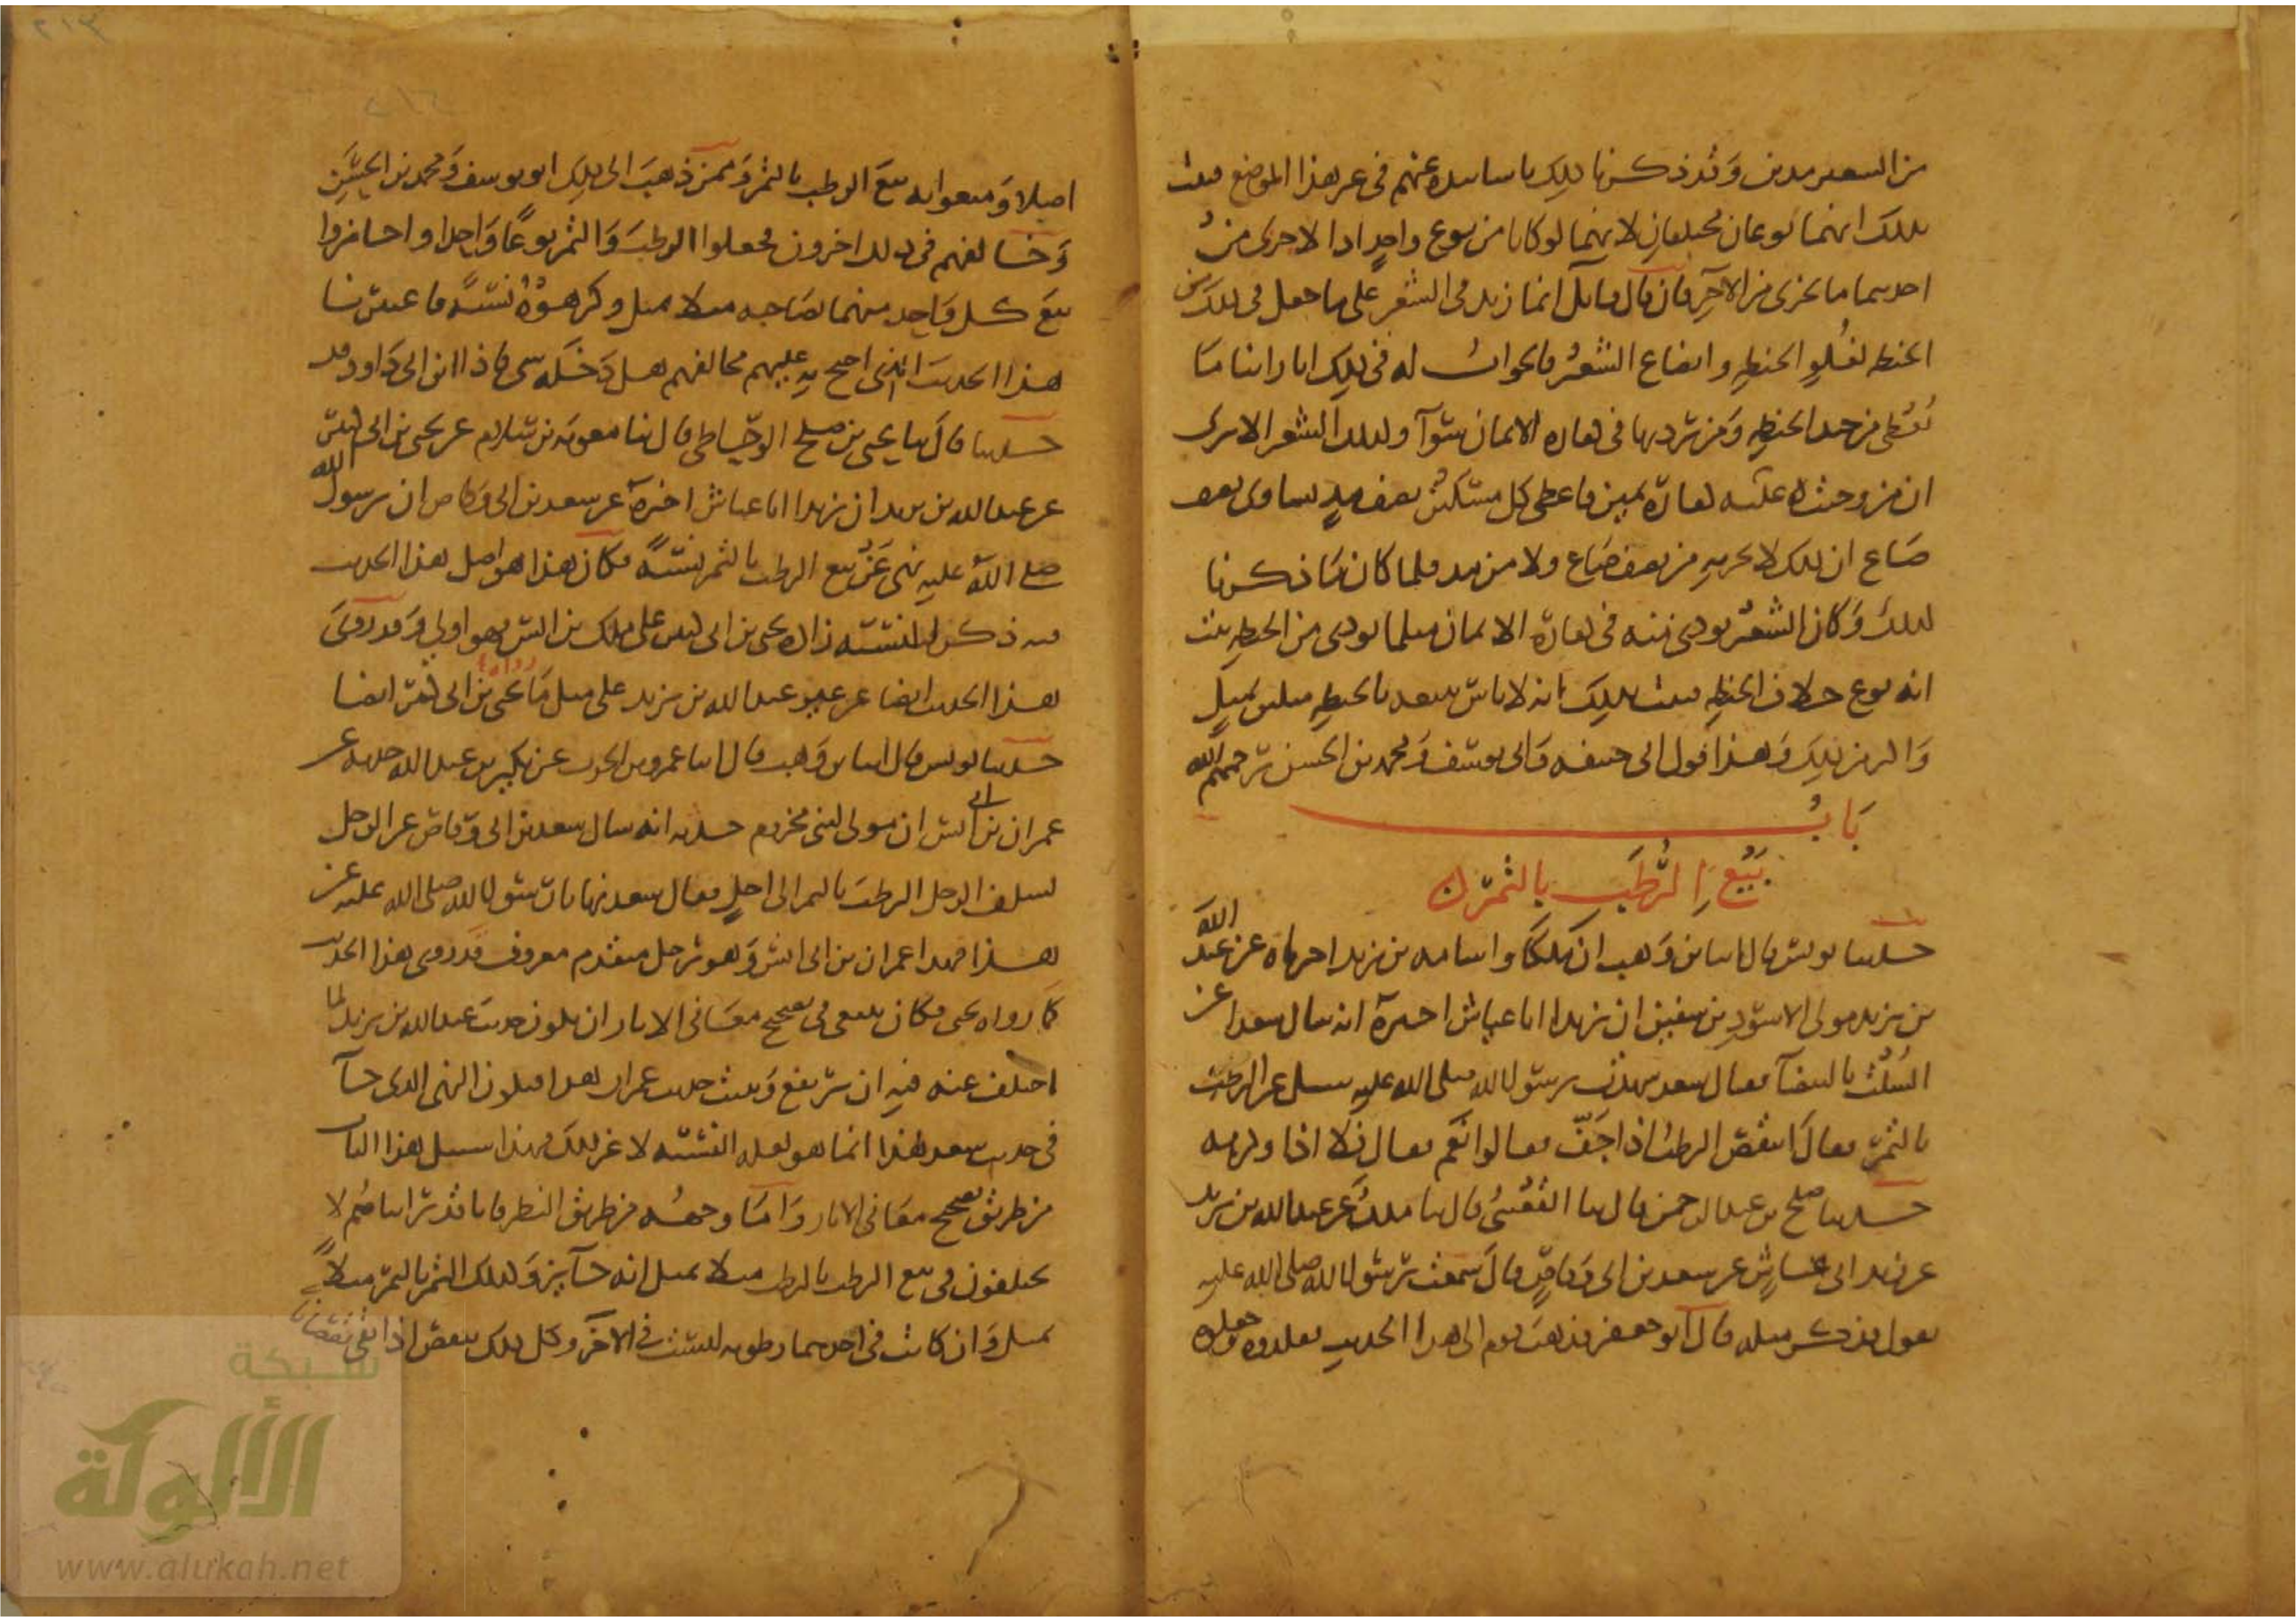 من الشعير مدين وقد ذكرنا ذلك باسانيده عنهم في غير هذا الموضع فثبت
بذلك انهما نوعان مختلفان لانهما لو كانا من نوع واحد اذا لاجزى من
احدهما ما يجزى من الآخر فان قال قايل انما زيد في الشعير على ما جعل في ذلك من
الحنطه لغلو الحنطه واتضاع الشعير فالجواب له في ذلك انا راينا ما
يُعطى من جيد الحنطه ومن رديها في كفاره الايمان سوآ وكذلك الشعير الا ترى
ان من وجبت عليه كفارة يمين فاعطى كل مسكين نصف مد يساوى نصف
صاع ان ذلك لا يجزيه من نصف صاع ولا من مد فلما كان ما ذكرنا
كذلك وكان الشعير يودى منه في كفارة الايمان مثلما يودى من الحنطه ثبت
انه نوع خلاف الحنطه فثبت بذلك انه لا باس ببيعه بالحنطه مثلين بمثل
واكثر من ذلك وهذا قول ابى حنيفه وابى يوسف ومحمد بن الحسن رحمهم الله
باب
بيع الرطب بالتمر
حدثنا يونس قال انا ابن وهب ان مالكا واسامه بن زيد اخبراه عن عبد الله
بن يزيد مولى الاسود بن سفين ان زيدا ابا عياش اخبره انه سال سعدا عن
السلت بالبيضآ فقال سعد شهدت رسول الله صلى الله عليه يسئل عن الرطب
بالتمر فقال اينقص الرطب اذا جف فقالوا نعم فقال فلا اذا وكرهه
حدثنا صلح بن عبد الرحمن قال ثنا القعنبى قال ثنا ملك عن عبد الله بن يزيد
عن زيد ابى عياش عن سعد بن ابى وقاص قال سمعت رسول الله صلى الله عليه
يقول فذكر مثله قال ابو جعفر فذهب قوم الى هذا الحديث فقلدوه وجعلوه
اصلا ومنعوا به بيع الرطب بالتمر وممن ذهب الى ذلك ابو يوسف ومحمد بن الحسن
وخالفهم في ذلك اخرون فجعلوا الرطب والتمر نوعا واحدا واجازوا
بيع كل واحد منهما بصاحبه مثلا بمثل وكرهوه نسئة فاعتبرنا
هذا الحديث الذى احتج به عليهم مخالفهم هل دخله شى فاذا ابن ابى داود قد
حدثنا قال ثنا يحيى بن صلح الوحاظى قال ثنا معويه بن سلام عن يحيى بن ابى كثير
عن عبد الله بن يزيد ان زيدا ابا عياش اخبره عن سعد بن ابى وقاص ان رسول الله
صلى الله عليه نهى عن بيع الرطب بالتمر نسئة فكان هذا هو اصل هذا الحديث
فيه ذكر النسئه زاده يحيى بن ابى كثير على ملك بن انس فهو اولى وقد روى
هذا الحديث ايضا عن غير عبد الله بن يزيد على مثل ما رواه يحيى بن ابى كثير ايضا
حدثنا يونس قال انا ابن وهب قال انا عمرو بن الحرث عن بكير بن عبد الله حدثه عن
عمران بن ابى انس ان مولى لبنى مخزوم حدثه انه سال سعد بن ابى وقاص عن الرجل
يسلف الرجل الرطب بالتمر الى اجل فقال سعد نهانا رسول الله صلى الله عليه عن
هذا فهذا عمران بن ابى انس وهو رجل متقدم معروف قد روى هذا الحديث
كما رواه يحيى فكان ينبغى في تصحيح معانى الاثار ان يكون حديث عبد الله بن يزيد لما
اختلف عنه فيه ان يرتفع ويثبت حديث عمران هذا فيكون النهى الذى جآ
في حديث سعد هذا انما هو لعله النسئه لا غير ذلك فهذا سبيل هذا الباب
من طريق تصحيح معانى الاثار واما وجهه من طريق النظر فانا قد رايناهم لا
يختلفون في بيع الرطب بالرطب مثلا بمثل انه جآيز وكذلك التمر بالتمر مثلا
بمثل وان كانت في احدهما رطوبه ليست في الاخر وكل ذلك ينقص اذا بقى نقصانا
شبكة
الألوكة
www.alukah.net